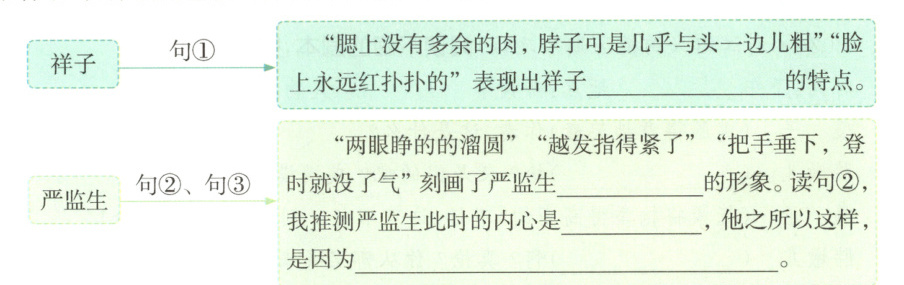 祥子
句①
“腮上没有多余的肉，脖子可是几乎与头一边儿粗”“脸
上永远红扑扑的”表现出祥子________________的特点。
严监生
句②、句③
“两眼睁的的溜圆”“越发指得紧了”“把手垂下，登
时就没了气”刻画了严监生____________的形象。读句②，
我推测严监生此时的内心是____________，他之所以这样，
是因为____________________________________。